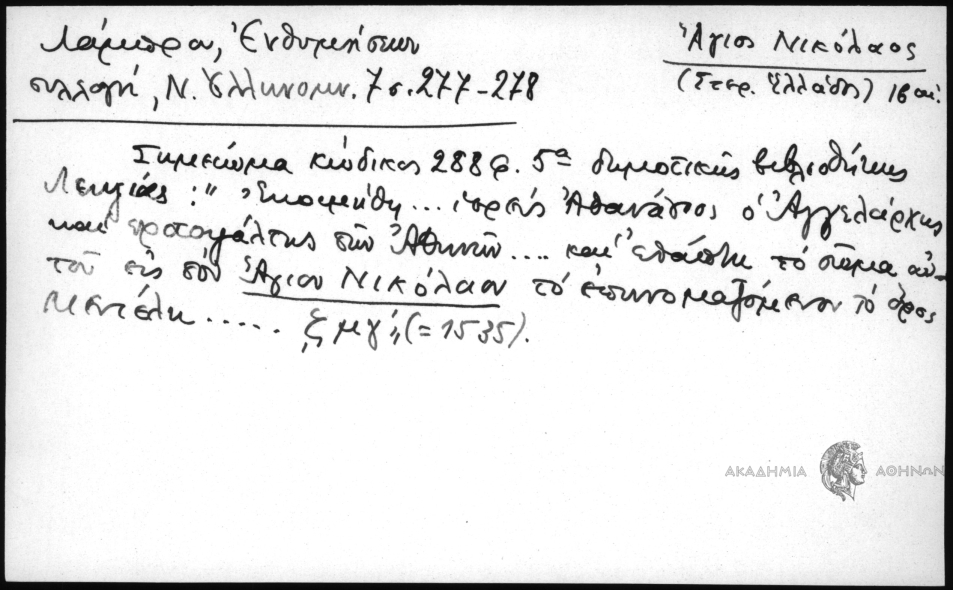 Λάμπρα, Ἐνθυμήσεων
συλλογή, Ν. Ἑλληνομν. 7 σ. 277-278
Ἅγιος Νικόλαος
(Στερ. Ἑλλάδος) 16 αἰ.
Σημείωμα κώδικος 288 φ. 5α δημοτικῆς βιβλιοθήκης
Λειψίας: " Ἐκοιμήθη... ἱερεὺς Ἀθανάσιος ὁ Ἀγγελάρχης
καὶ πρωτοψάλτης τῶν Ἀθηνῶν.... καὶ ἐθάπτη τὸ σῶμα αὐ-
τοῦ εἰς τὸν Ἅγιον Νικόλαον τὸ ἐπονομαζόμενον τὸ ὄρος
Μεντέλη...... ͵ζμγ΄,, (=1535).
ΑΚΑΔΗΜΙΑ ΑΘΗΝΩΝ